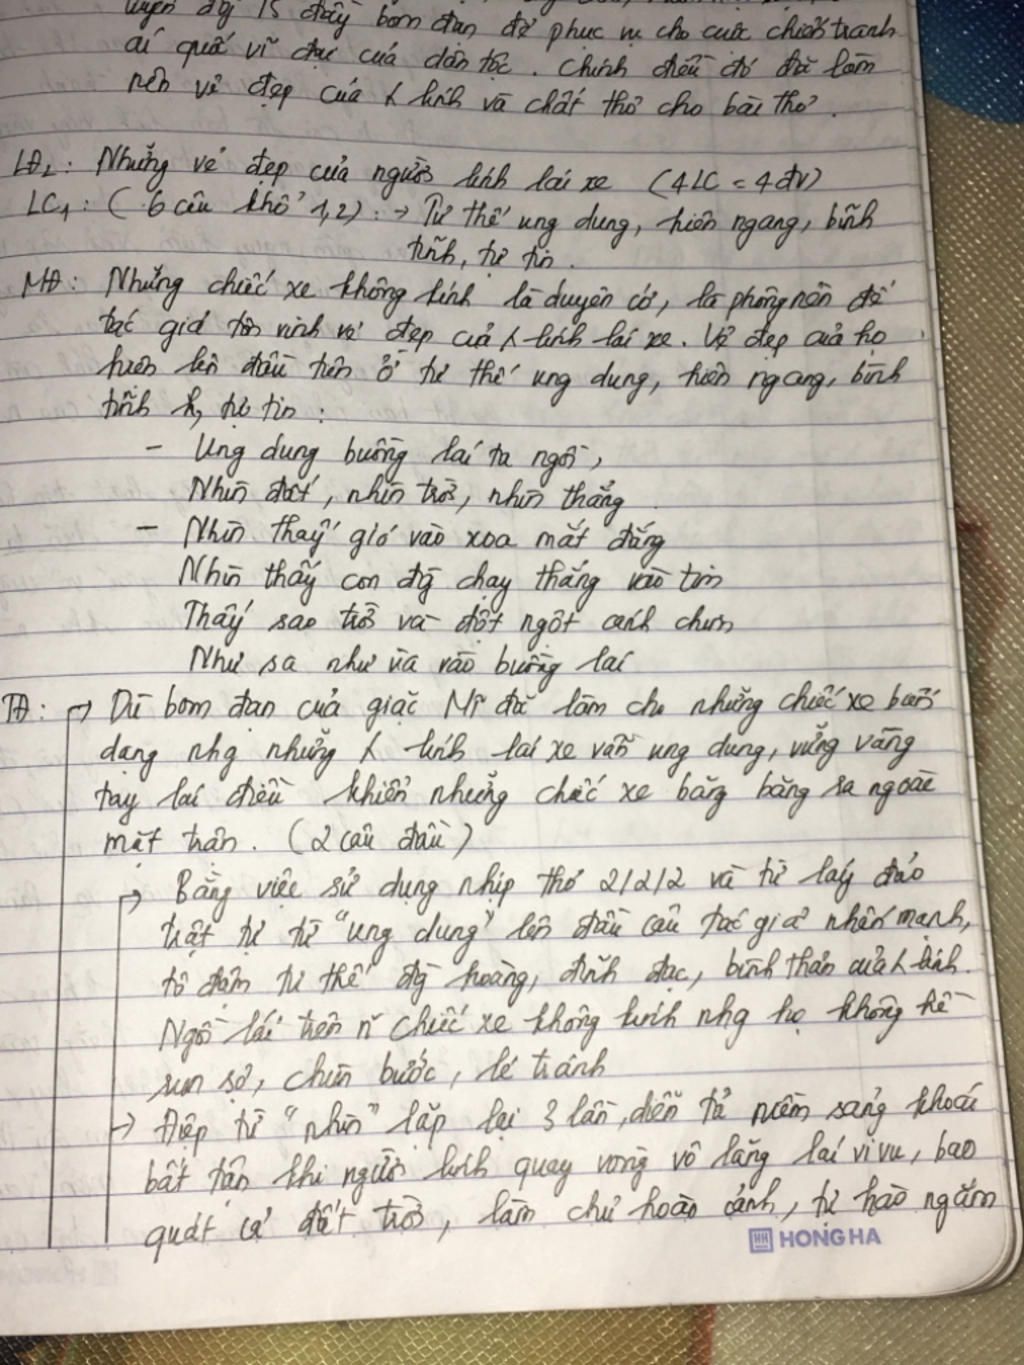 đầy bom đạn để phục vụ cho cuộc chiến tranh
ái quốc vĩ đại của dân tộc. Chính điều đó đã làm
nên vẻ đẹp của λ lính và chất thơ cho bài thơ.
LĐ2: Những vẻ đẹp của người lính lái xe (4LC = 4đv)
LC1: (6 câu khổ 1,2): → Tư thế ung dung, hiên ngang, bình
tĩnh, tự tin.
MĐ: Những chiếc xe không kính là duyên cớ, là phông nền để
tác giả tôn vinh vẻ đẹp của λ lính lái xe. Vẻ đẹp của họ
hiện lên đầu tiên ở tư thế ung dung, hiên ngang, bình
tĩnh, tự tin:
- Ung dung buồng lái ta ngồi,
Nhìn đất, nhìn trời, nhìn thẳng
- Nhìn thấy gió vào xoa mắt đắng
Nhìn thấy con đg chạy thẳng vào tim
Thấy sao trời và đột ngột cánh chim
Như sa như ùa vào buồng lái
TĐ: → Dù bom đạn của giặc Mĩ đã làm cho những chiếc xe biến
dạng nhg những λ lính lái xe vẫn ung dung, vững vàng
tay lái điều khiển những chiếc xe băng băng ra ngoài
mặt trận. (2 câu đầu)
→ Bằng việc sử dụng nhịp thơ 2/2/2 và từ láy đảo
trật tự từ "ung dung" lên đầu câu tác giả nhấn mạnh,
tô đậm tư thế đg hoàng, đĩnh đạc, bình thản của λ lính.
Ngồi lái trên n~ chiếc xe không kính nhg họ không hề
run sợ, chùn bước, lé tránh
→ Điệp từ "nhìn" lặp lại 3 lần, diễn tả niềm sảng khoái
bất tận khi người lính quay vòng vô lăng lái vi vu, bao
quát cả đất trời, làm chủ hoàn cảnh, tự hào ngắm
HONG HA